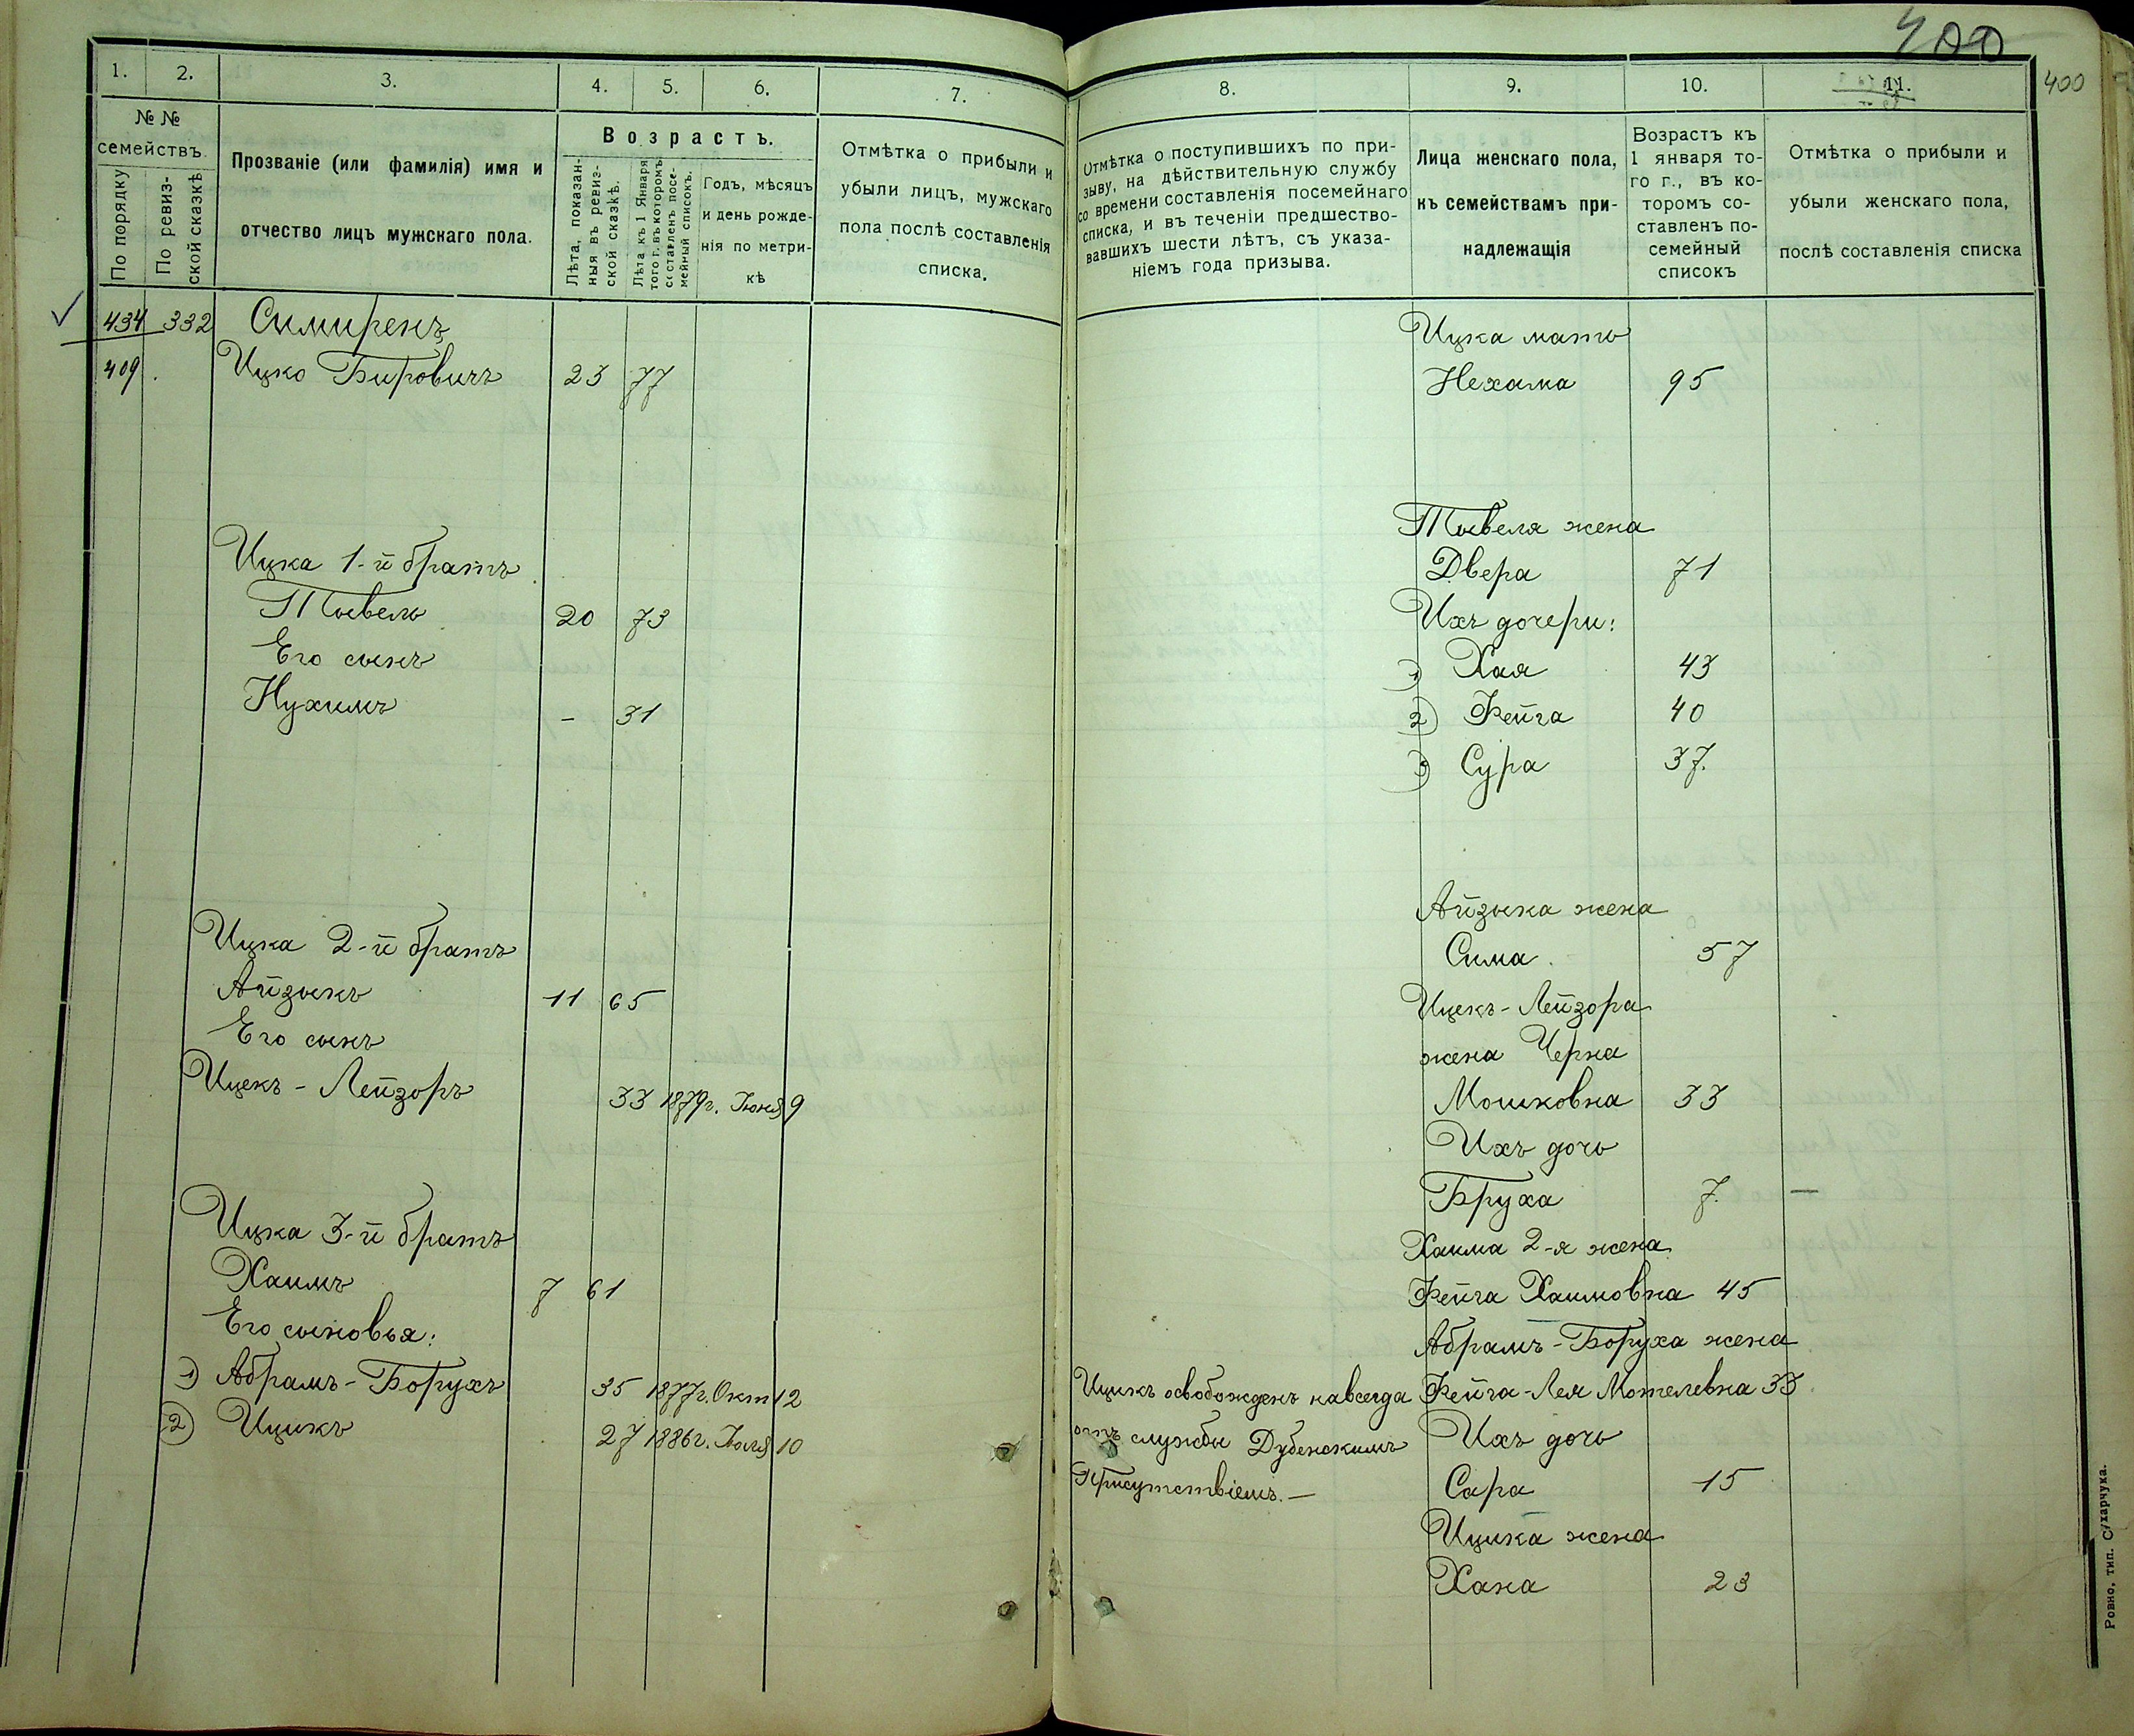 400
400
1.
2.
3.
4.
5.
6.
7.
№ №
семействъ.
По порядку
По ревиз-
ской сказкѣ
Прозваніе (или фамилія) имя и
отчество лицъ мужскаго пола.
Возрастъ.
Лѣта, показан-
ныя въ ревиз-
ской сказкѣ.
Лѣта къ 1 Января
того г. въ которомъ
составленъ посе-
мейный списокъ.
Годъ, мѣсяцъ
и день рожде-
нія по метри-
кѣ
Отмѣтка о прибыли и
убыли лицъ, мужскаго
пола послѣ составленія
списка.
434 332 Симиренъ
409 Ицко Бировичъ 23 77
Ицка 1-й братъ
Товель 20 73
Его сынъ
Нухимъ - 31
Ицка 2-й братъ
Айзыкъ 11 65
Его сынъ
Ицекъ-Лейзоръ 33 1879г. Іюня 9
Ицка 3-й братъ
Хаимъ 7 61
Его сыновья:
1) Абрамъ-Борухъ 35 1877г. Окт 12
2) Ицикъ 27 1886г. Іюля 10
8.
9.
10.
11.
Отмѣтка о поступившихъ по при-
зыву, на дѣйствительную службу
со времени составленія посемейнаго
списка, и въ теченіи предшество-
вавшихъ шести лѣтъ, съ указа-
ніемъ года призыва.
Лица женскаго пола,
къ семействамъ при-
надлежащія
Возрастъ къ
1 января то-
го г., въ ко-
торомъ со-
ставленъ по-
семейный
списокъ
Отмѣтка о прибыли и
убыли женскаго пола,
послѣ составленія списка
Ицка мать
Нехама 95
Товеля жена
Двера 71
Ихъ дочери:
1) Хая 43
2) Фейга 40
3) Сура 37.
Айзыка жена
Сима. 57
Ицекъ-Лейзора
жена Черна
Мошковна 33
Ихъ дочь
Бруха 7. —
Хаима 2-я жена
Фейга Хаимовна 45
Абрамъ-Боруха жена
Ицикъ освобожденъ навсегда Фейга-Лея Мотелевна 33.
отъ службы Дубенскимъ Ихъ дочь
Присутствіемъ.— Сара 15
Ицика жена
Хана 23
Ровно, тип. Сухарчука.